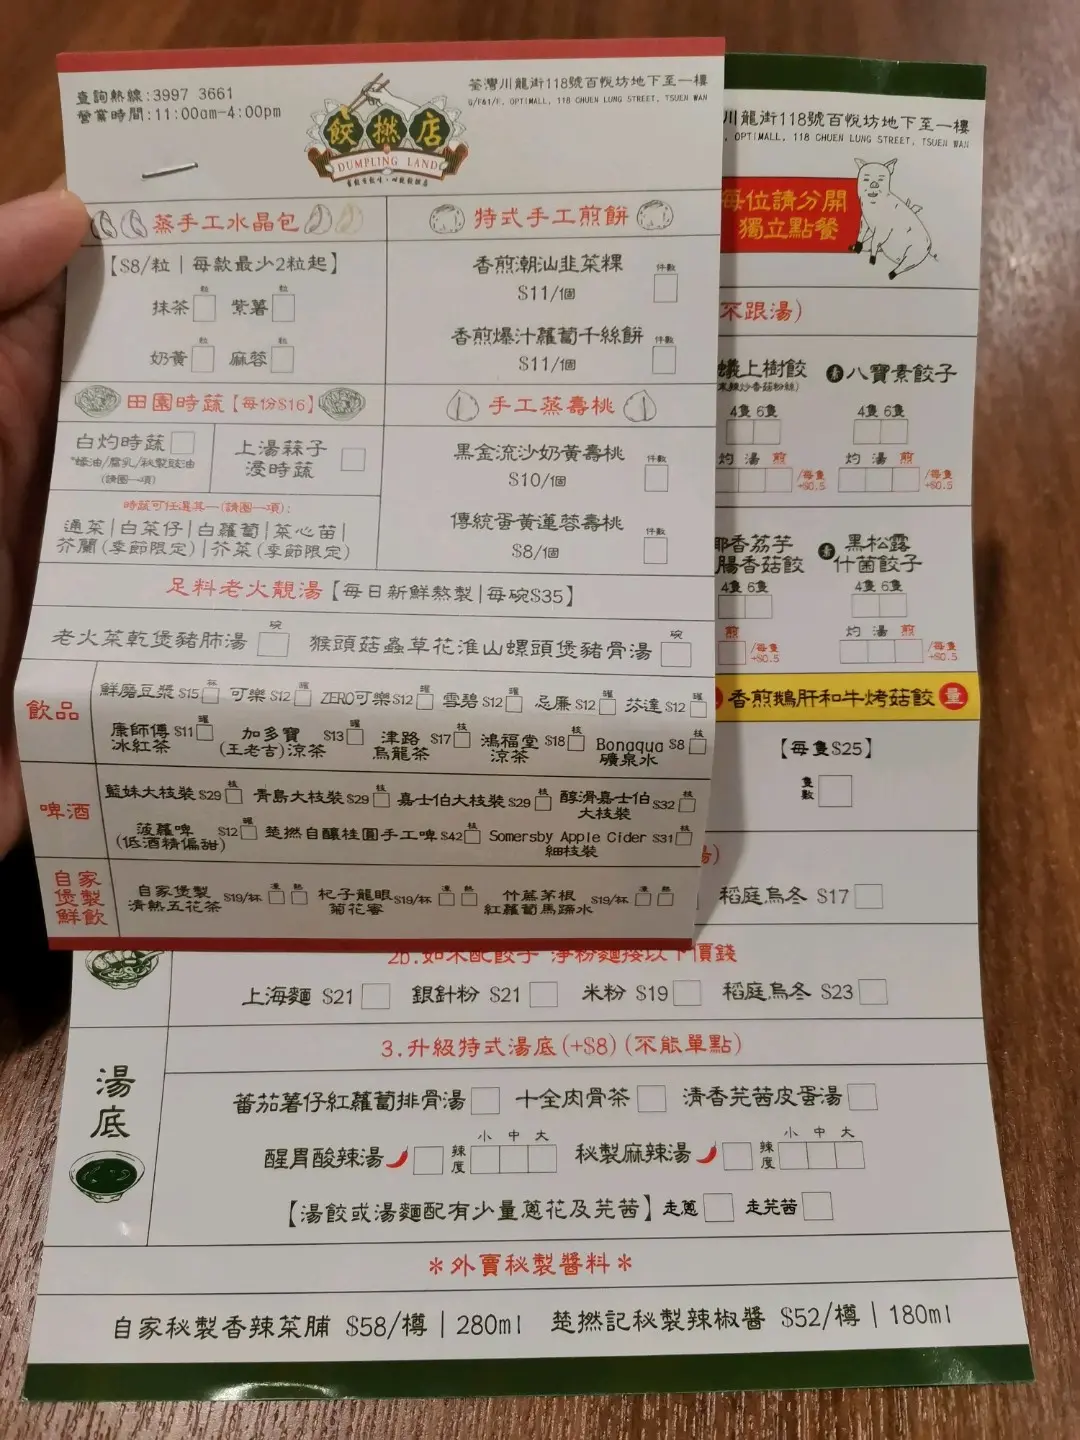 查詢熱線:3997 3661
營業時間:11:00am-4:00pm
餃撚店
DUMPLING LAND
荃灣川龍街118號百悅坊地下至一樓
G/F&1/F, OPTIMALL, 118 CHUEN LUNG STREET, TSUEN WAN
蒸手工水晶包
【$8/粒|每款最少2粒起】
粒 粒
抹茶 紫薯
粒 粒
奶黃 麻蓉
特式手工煎餅
香煎潮汕韭菜粿 件數
$11/個
香煎爆汁蘿蔔千絲餅 件數
$11/個
田園時蔬【每份$16】
白灼時蔬
*蠔油/腐乳/秘製豉油
(請圈一項)
上湯蒜子
浸時蔬
時蔬可任選其一(請圈一項):
通菜|白菜仔|白蘿蔔|菜心苗|
芥蘭(季節限定)|芥菜(季節限定)
手工蒸壽桃
黑金流沙奶黃壽桃 件數
$10/個
傳統蛋黃蓮蓉壽桃 件數
$8/個
足料老火靚湯【每日新鮮熬製|每碗$35】
老火菜乾煲豬肺湯 碗 猴頭菇蟲草花淮山螺頭煲豬骨湯 碗
飲品
鮮磨豆漿$15 杯 可樂$12 罐 ZERO可樂$12 罐 雪碧$12 罐 忌廉$12 罐 芬達$12 罐
康師傅 $11 罐
冰紅茶
加多寶 $13 罐
(王老吉)涼茶
津路 $17 枝
烏龍茶
鴻福堂 $18 枝
涼茶
Bonaqua $8 枝
礦泉水
啤酒
藍妹大枝裝$29 枝 青島大枝裝$29 枝 嘉士伯大枝裝$29 枝 醇滑嘉士伯 $32 枝
大枝裝
菠蘿啤 $12 罐
(低酒精偏甜)
楚撚自釀桂圓手工啤$42 枝 Somersby Apple Cider $31 枝
細枝裝
自家
煲製
鮮飲
自家煲製 $19/杯 凍 熱
清熱五花茶
杞子龍眼 $19/杯 凍 熱
菊花蜜
竹蔗茅根 $19/杯 凍 熱
紅蘿蔔馬蹄水
川龍街118號百悅坊地下至一樓
, OPTIMALL, 118 CHUEN LUNG STREET, TSUEN WAN
每位請分開
獨立點餐
不跟湯)
蟻上樹餃 素 八寶素餃子
4隻 6隻 4隻 6隻
灼 湯 煎 /每隻 +$0.5 灼 湯 煎 /每隻 +$0.5
椰香荔芋
腸香菇餃
素 黑松露
什菌餃子
4隻 6隻 4隻 6隻
煎 /每隻 +$0.5 灼 湯 煎 /每隻 +$0.5
香煎鵝肝和牛烤菇餃 量
【每隻$25】
隻數
湯)
稻庭烏冬 $17
2b.如不配餃子 淨粉麵按以下價錢
上海麵 $21 銀針粉 $21 米粉 $19 稻庭烏冬 $23
湯底
3.升級特式湯底(+$8)(不能單點)
蕃茄薯仔紅蘿蔔排骨湯 十全肉骨茶 清香芫茜皮蛋湯
醒胃酸辣湯 辣度 小 中 大 秘製麻辣湯 辣度 小 中 大
【湯餃或湯麵配有少量蔥花及芫茜】走蔥 走芫茜
*外賣秘製醬料*
自家秘製香辣菜脯 $58/樽|280ml 楚撚記秘製辣椒醬 $52/樽|180ml